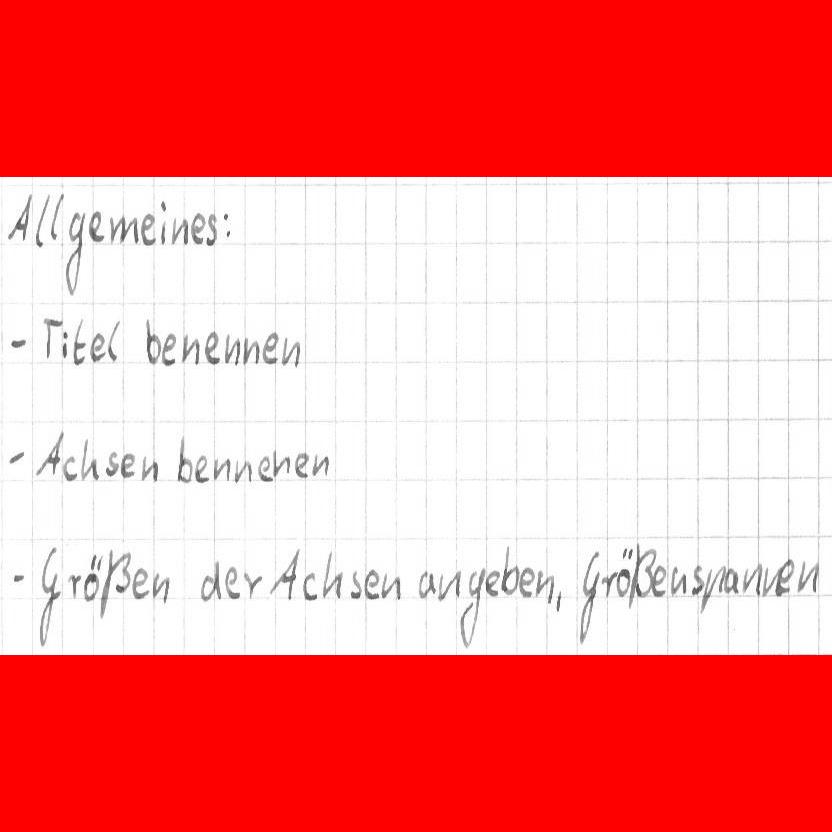 Allgemeines:
- Titel benennen
- Achsen bennenen
- Größen der Achsen angeben, Größenspannen